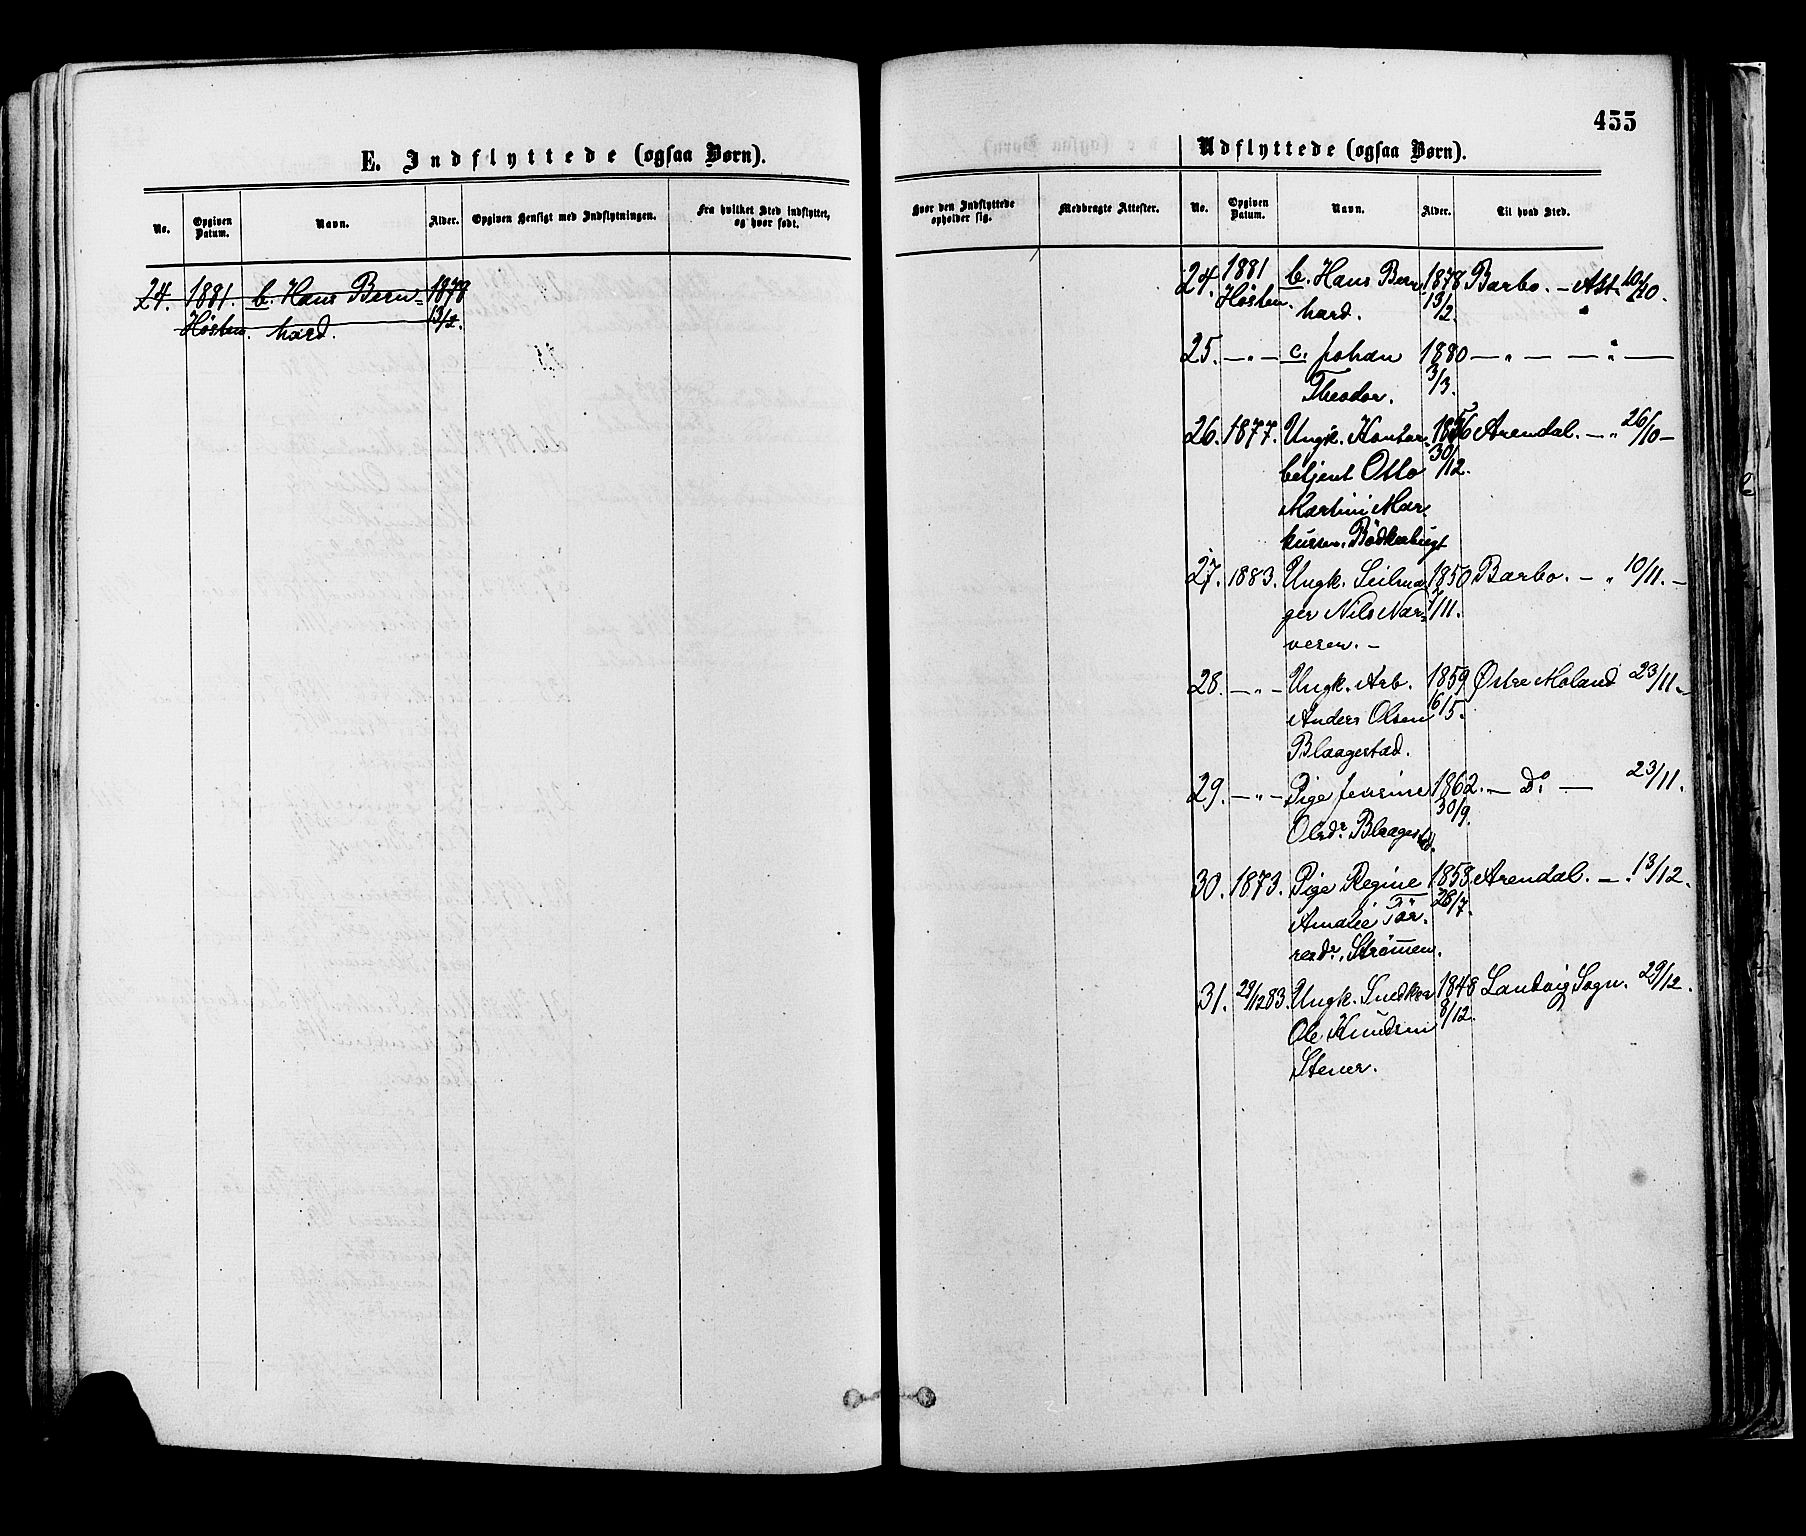 455
E. Indflyttede (ogsaa Børn).
No. Opgiven Datum. Navn. Alder. Opgiven Hensigt med Indflytningen. Fra hvilket Sted indflyttet, og hvor født.
24. 1881. b. Hans Bern= 1878
Høsten. hard. 13/2.
Udflyttede (ogsaa Børn).
Hvor den Indflyttede opholder sig. Medbragte Attester. No. Opgiven Datum. Navn. Alder. Til hvad Sted.
24. 1881 b. Hans Bern 1878 Barbo. - Att. 10/10.
Høsten. hard. 13/2.
25. — " — c. Johan 1880 — " — — " —
Theodor. 3/3.
26. 1877. Ungk. Kontor 1856 Arendal. — " 26/10 -
betjent Otto 30/12.
Martini Mar
kussen. Bødkerbugt
27. 1883. Ungk. Seilma 1850 Barbo. — " 10/11. -
ger Nils Nar= /11.
vesen. -
28. — " — Ungk. Arb. 1859 Østre Moland 23/11 -
Anders Olsen 6/5.
Blaagestad.
29. — " — Pige Jensine 1862. — Do — 23/11.
Olsdr. Blaagestad. 30/9.
30. 1873. Pige Regine 1858 Arendal. — . 13/12.
Amalie Tør 28/7.
resdr. Strømmen.
31. 29/12 83. Ungk. Snedker 1848 Landvig Sogn. 29/12.
Ole Knudsen 8/12.
Stener.